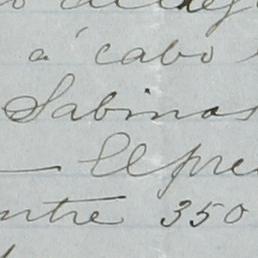 á cabo
Sabinas
— El pre
ntre 350